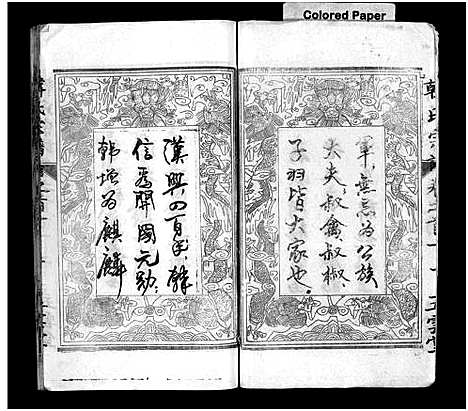 Colored Paper
軍,無忌為公族
大夫,叔禽叔椒,
子羽皆大家也,
漢興四百年,韓
信為開國元勳,
韓增為麒麟
韓氏宗譜 卷之首